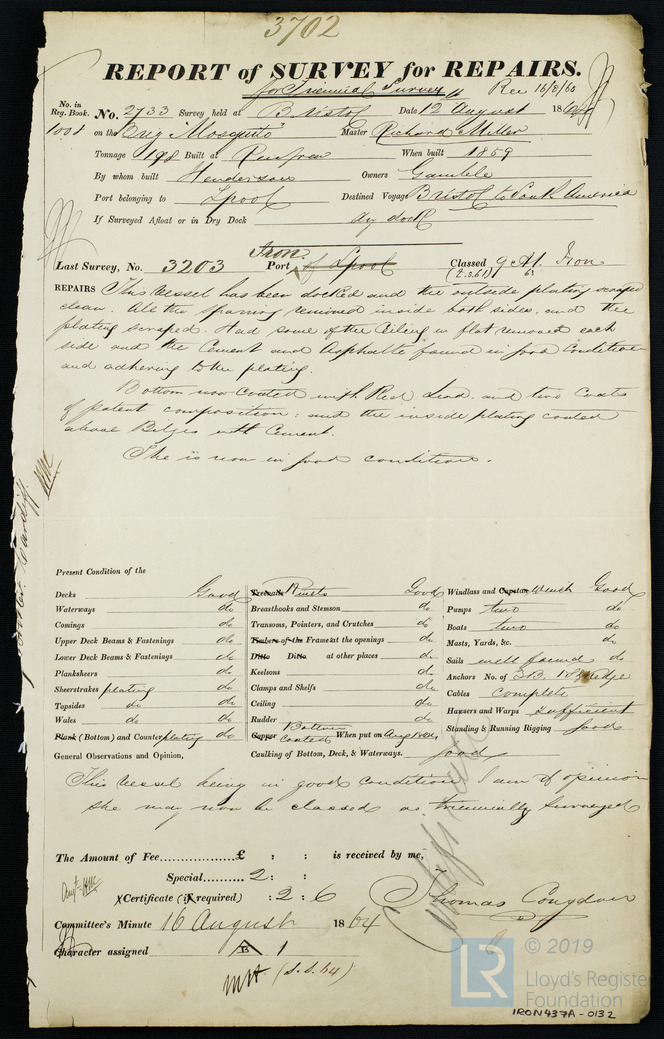 3702
REPORT of SURVEY for REPAIRS.
for Triennial Survey Rec 16/8/64
No. in Reg. Book. No. 2733 Survey held at Bristol Date 12 August 1864
1001 on the Brig "Mosquito" Master Richard Miller
Tonnage 198 Built at Renfrew When built 1859
By whom built Henderson Owners Gamble
Port belonging to Lpool Destined Voyage Bristol to South America
If Surveyed Afloat or in Dry Dock dry dock
Iron
Last Survey, No. 3203 Port of Lpool Classed 9 A1. Iron
REPAIRS This vessel has been docked and the outside plating scraped
clean. All the sparring removed inside both sides, and the
plating scraped. Had some of the Ceiling in flat removed each
side and the Cement and Asphalte found in good Condition
and adhering to the plating.
Bottom now coated with Red Lead. and two Coats
of patent composition; and the inside plating coated
above Bilges with Cement.
She is now in good condition.
Present Condition of the
Decks Good Treenails Rivets Good Windlass and Capstan Winch Good
Waterways do Breasthooks and Stemson do Pumps two do
Comings do Transoms, Pointers, and Crutches do Boats two do
Upper Deck Beams & Fastenings do Timbers of the Frame at the openings do Masts, Yards, &c. do
Lower Deck Beams & Fastenings do Ditto Ditto at other places do Sails well found do
Planksheers do Keelsons do Anchors No. of 3 B.
Sheerstrakes plating do Clamps and Shelfs do Cables Complete
Topsides do do Ceiling do Hawsers and Warps Sufficient
Wales do do Rudder do Standing & Running Rigging good
Plank (Bottom) and Counter plating do Copper Bottom Coated When put on Aug 1864
General Observations and Opinion, Caulking of Bottom, Deck, & Waterways. good
This vessel being in good condition I am of opinion
she may now be classed as Triennially Surveyed
The Amount of Fee £ : : is received by me,
Special 2 : :
Certificate (if required) : 2 : 6 Thomas Congdon
Certificate
Committee's Minute 16 August 1864
Character assigned A 1
(S.S. 64)
© 2019
LR
Lloyd's Register
Foundation
IRON437A-0132